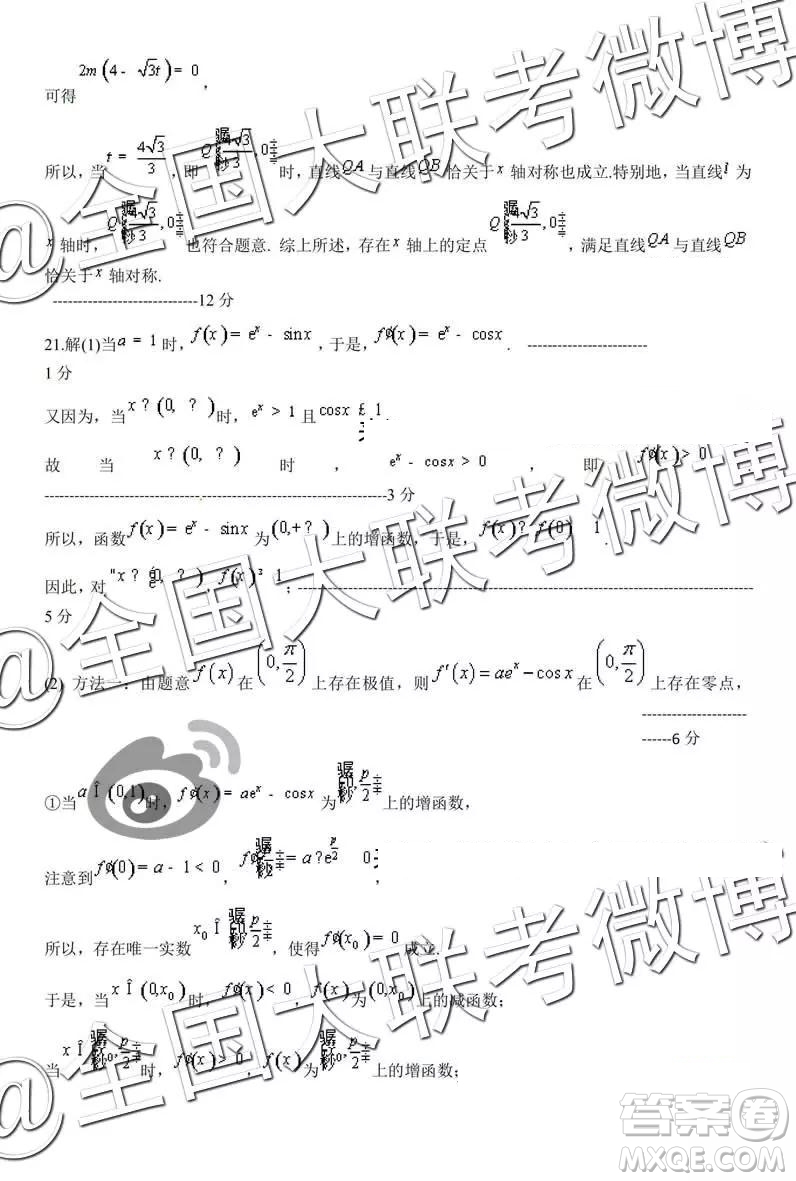 2m(4 - √3t) = 0
可得 ,
所以,当 t = 4√3/3 ,即 Q 骣4√3/3,0 时,直线QA与直线QB恰关于x轴对称也成立.特别地,当直线l为
x轴时, Q 骣4√3/3,0 也符合题意. 综上所述,存在x轴上的定点 Q 骣4√3/3,0 ,满足直线QA与直线QB
恰关于x轴对称.
-----------------------------12 分
21.解(1)当a = 1时, f(x) = e^x - sinx ,于是, f¢(x) = e^x - cosx . ------------------------
1 分
又因为,当x?(0, ?)时, e^x > 1 且 cosx £ 1 .
故 当 x?(0, ?) 时 , e^x - cosx > 0 , 即 f¢(x) > 0 .
---------------------------------------------------------------------3 分
所以,函数f(x) = e^x - sinx为(0,+?)上的增函数,于是, f(x)? f(0) 1 .
因此,对"x?(0, ?), f(x)³ 1;--------------------------------------------------------------------------------------------
5 分
(2) 方法一:由题意f(x)在(0,π/2)上存在极值,则f'(x)=ae^x−cosx在(0,π/2)上存在零点,
---------------------
------6 分
①当a Î (0,1)时, f¢(x) = ae^x - cosx 为 骣0,p/2 上的增函数,
注意到 f¢(0) = a - 1 < 0 , f¢ 骣p/2 = a?e^(p/2) 0 ,
所以,存在唯一实数 x₀ Î 骣0,p/2 ,使得 f¢(x₀) = 0 成立.
于是,当x Î (0,x₀)时, f¢(x) < 0 , f(x)为(0,x₀)上的减函数;
当 x Î 骣x₀,p/2 时, f¢(x) > 0 , f(x)为 骣x₀,p/2 上的增函数;
@全国大联考微博
@全国大联考微博
@全国大联考微博
答案卷
MXQE.COM